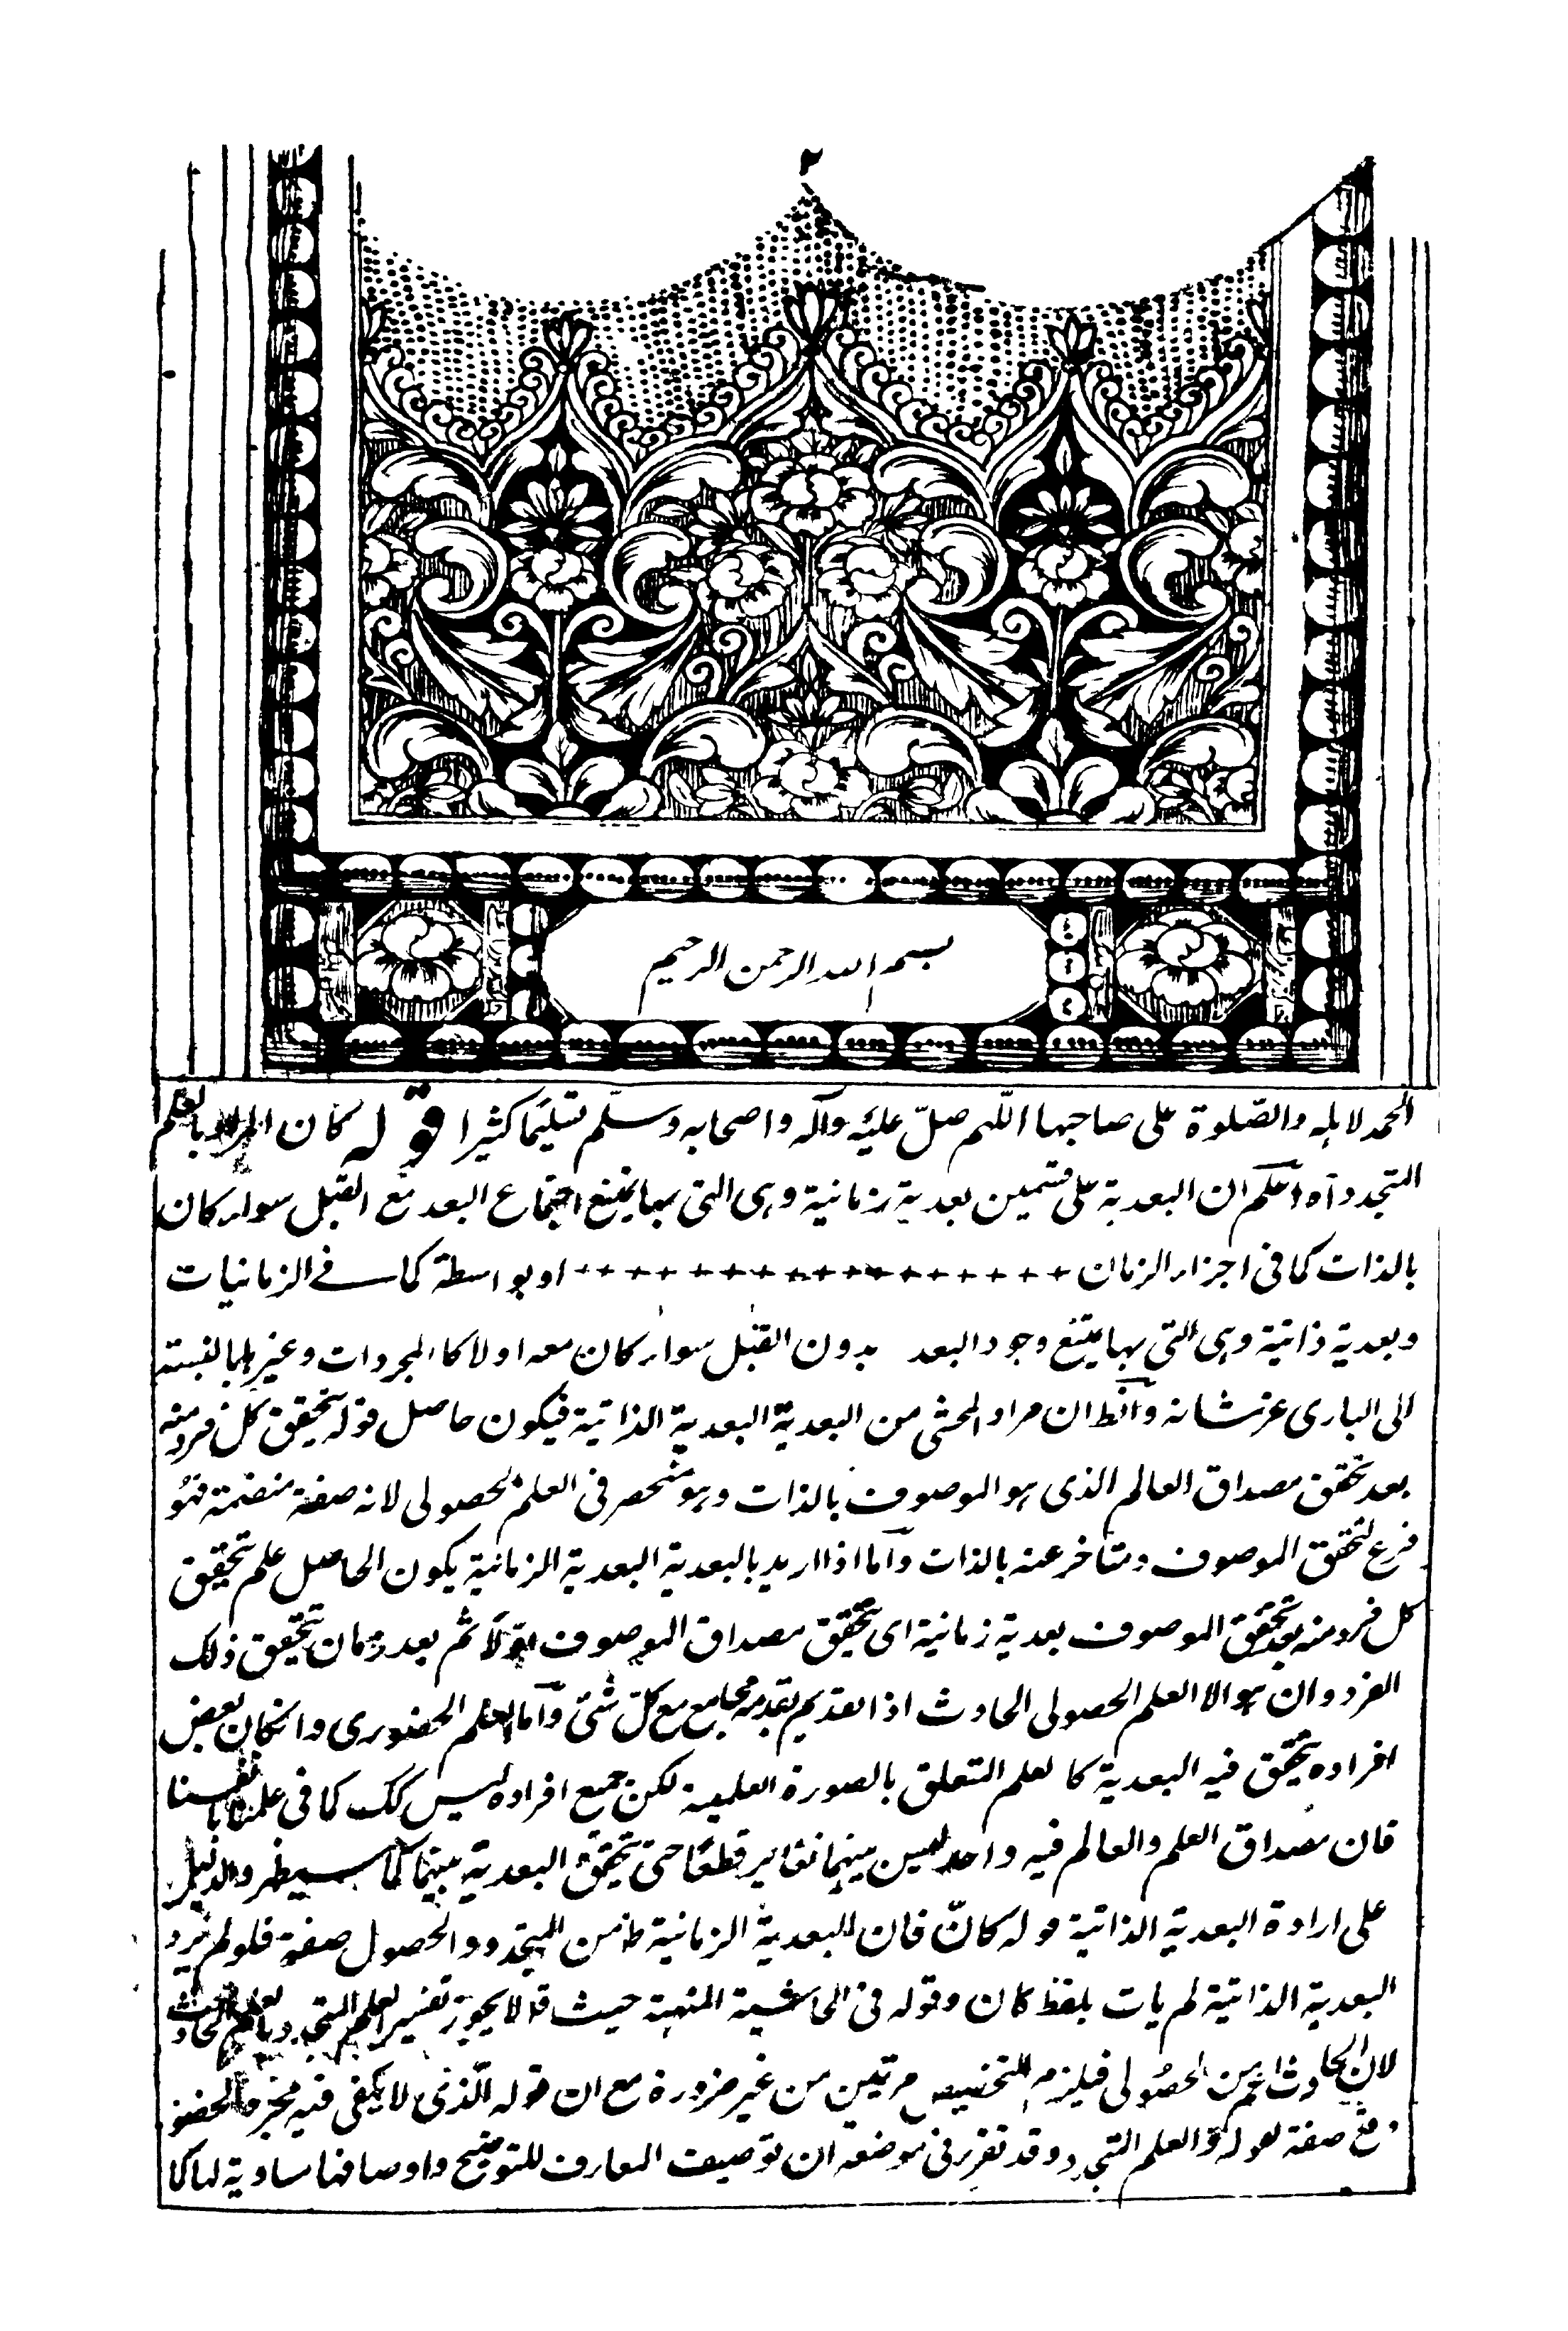 ٢
بسم الله الرحمن الرحيم
الحمد لاهله والصّلوة على صاحبها اللّهم صلّ عليه وآله واصحابه وسلّم تسليمًا كثيرا قوله كان المراد بالعلم
المتجدد آه اعلم ان البعدية على قسمين بعدية زمانية وهى التى بها يمتنع اجتماع البعد مع القبل سواء كان
بالذات كما فى اجزاء الزمان + + + + + + + + + + + + + + + + او بواسطة كما فے الزمانيات
وبعدية ذاتية وهى التى بها يمتنع وجود البعد بدون القبل سواء كان معه اولا كالمجردات وغيرها بالنسبة
الى البارى عز شانه والظ ان مراد المحشى من البعدية البعدية الذاتية فيكون حاصل قوله تحقق كل فرد منه
بعد تحقق مصداق العالم الذى هو الموصوف بالذات وهو منحصر فى العلم الحصولى لانه صفة منضمة فهو
فرع لتحقق الموصوف ومتاخر عنه بالذات وآما اذا اريد بالبعدية البعدية الزمانية يكون الحاصل علم تحقق
كل فرد منه بعد تحقق الموصوف بعدية زمانية اى تحقق مصداق الموصوف اوّلاً ثم بعد زمان تحقق ذلك
الفرد وان هو الا العلم الحصولى الحادث اذ القديم بقدمه مجامع مع كلّ شئ وآما العلم الحضورى وانكان بعض
افراده تحقق فيه البعدية كالعلم المتعلق بالصورة العلمية لكن جميع افراده ليس كك كما فى علمنا بانفسنا
فان مصداق العلم والعالم فيه واحد ليس بينهما تغاير قطعًا حتى تحقق البعدية بينهما كما سيظهر والدليل
على ارادة البعدية الذاتية قوله كانّ فان البعدية الزمانية ظ من المتجدد والحصول صفة فلو لم يرد
البعدية الذاتية لم يات بلفظ كان وقوله فى الحاشية المنهية حيث قال لا يجوز تفسير العلم المتجدد بالعلم الحادث
لان الحادث اعم من الحصولى فيلزم التخصيص مرتين من غير ضرورة مع ان قوله الّذى لا يكفى فيه مجرد الحضور
وقع صفة لقوله والعلم المتجدد وقد تقرر فى موضعه ان توصيف المعارف للتوضيح واوصافها مساوية لها كما